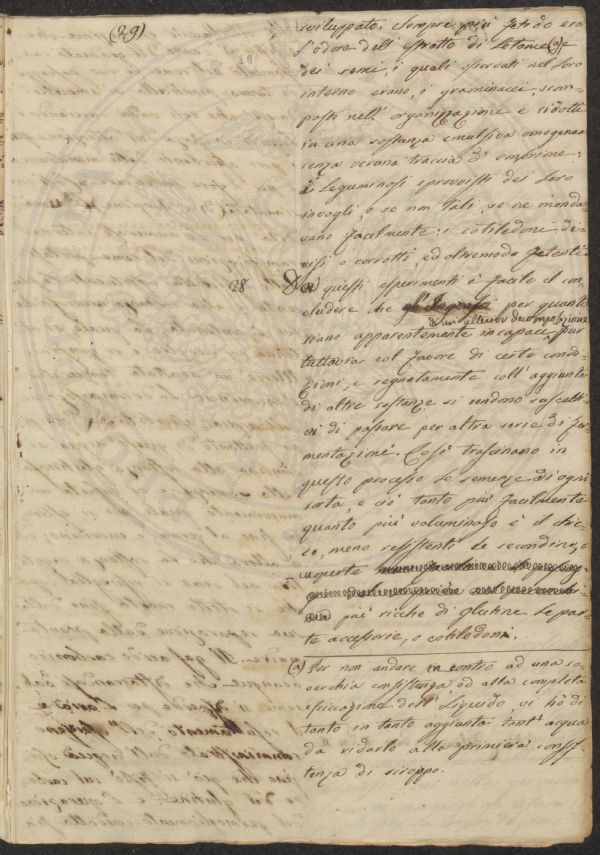 (29)
18
sviluppato. Sempre più fetido era
l'odore dell'estratto di Letame (a) e
dei semi, i quali osservati nel loro
interno erano, i graminacei, scom-
posti nell'organizzazione e ridotti
in una sostanza emulsiva omogenea
senza veruna traccia di embrione:
i Leguminosi sprovvisti dei loro
invogli, o se non tali, se ne monda-
vano facilmente: i cotiledoni di-
visi e corrotti, ed oltremodo fetenti.
28 Da questi esperimenti è facile il con-
cludere che per quanto
d'un ulterior decomposizione
siano apparentemente incapaci pur
tuttavia col favore di certe condi-
zioni, e segnatamente coll'aggiunta
di altre sostanze si rendono suscetti-
vi di passare per altra serie di fer-
mentazioni. Così trascinano in
questo processo le semenze di ogni
sorta, e ciò tanto più facilmente
quanto più voluminoso è il
meno resistenti le secondine, o
aperte
più ricche di glutine le par-
te accessorie, o cotiledoni.
(a) Per non andare incontro ad una so-
verchia consistenza od alla completa
essiccazione dell'Liquido, vi hò di
tanto in tanto aggiunta tant'acqua
da ridurlo alla primiera consis-
tenza di siroppo.